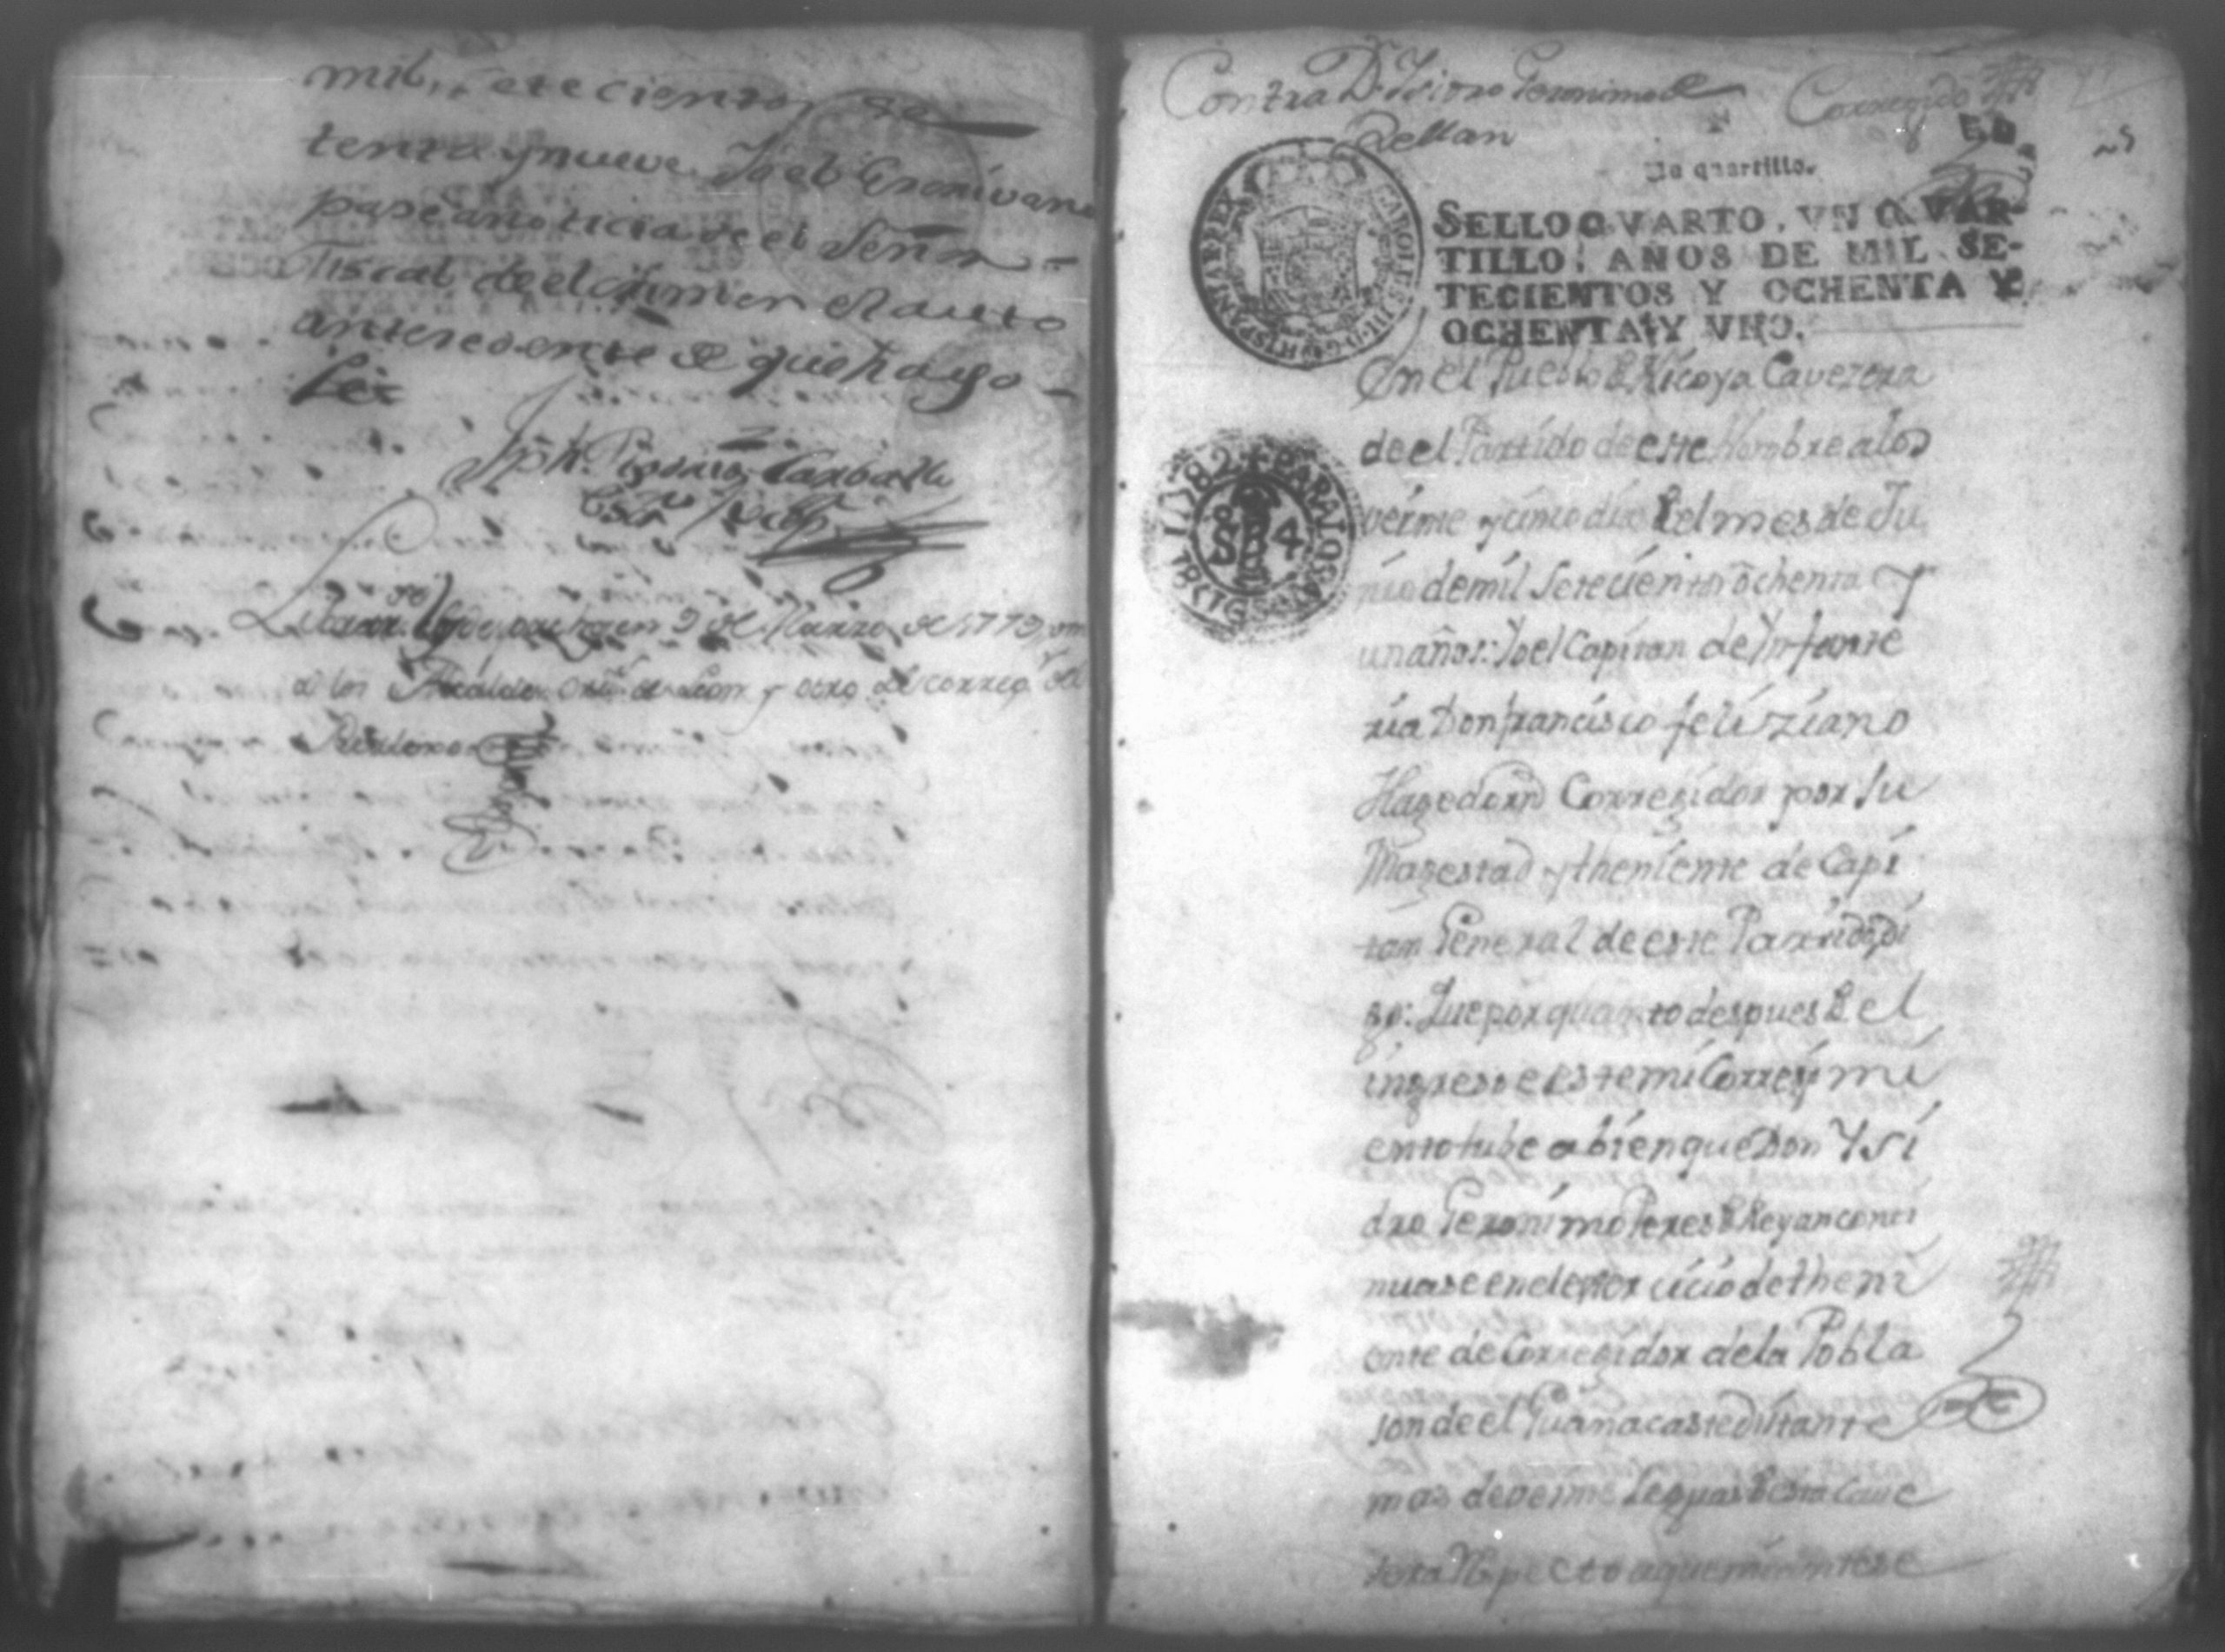 mil, setecientos se
tenta y nueve. Yo el Escrivano
pase a noticia de el Señor
Fiscal de el crimen el auto
antesedente de que hayo
fee
Jph. Carvallo
en 9 de Marzo de 1779
a los Alcaldes Ords. de Leon y otro al correg. del
Realexo
Contra Dn. Ysidro Geronimo de
Rellan
Un quartillo.
SELLO QVARTO, VN QVAR-
TILLO: AÑOS DE MIL SE-
TECIENTOS Y OCHENTA Y
OCHENTA Y VNO.
HISPANIAR REX CAROLUS III D G
En el Pueblo de Nicoya Cavezera
de el Partido de este Nombre a los
veinte y cinco dias del mes de Ju
nio de mil setecientos ochenta y
un años: Yo el Capitan de Ynfante
ria Don francisco feliziano
Hagedorn Corregidor por su
Magestad y theniente de Capi
tan General de este Partido di
go: Que por quanto despues de el
ingreso e este mi Corregimi
ento tube a bien que Don Ysi
dro Geronimo Peres de Reyan conti
nuase en el exercicio de theni
ente de Corregidor de la Pobla
sion de el Guanacaste distante
mas de veinte Leguas de esta Cave
sera Respecto a que